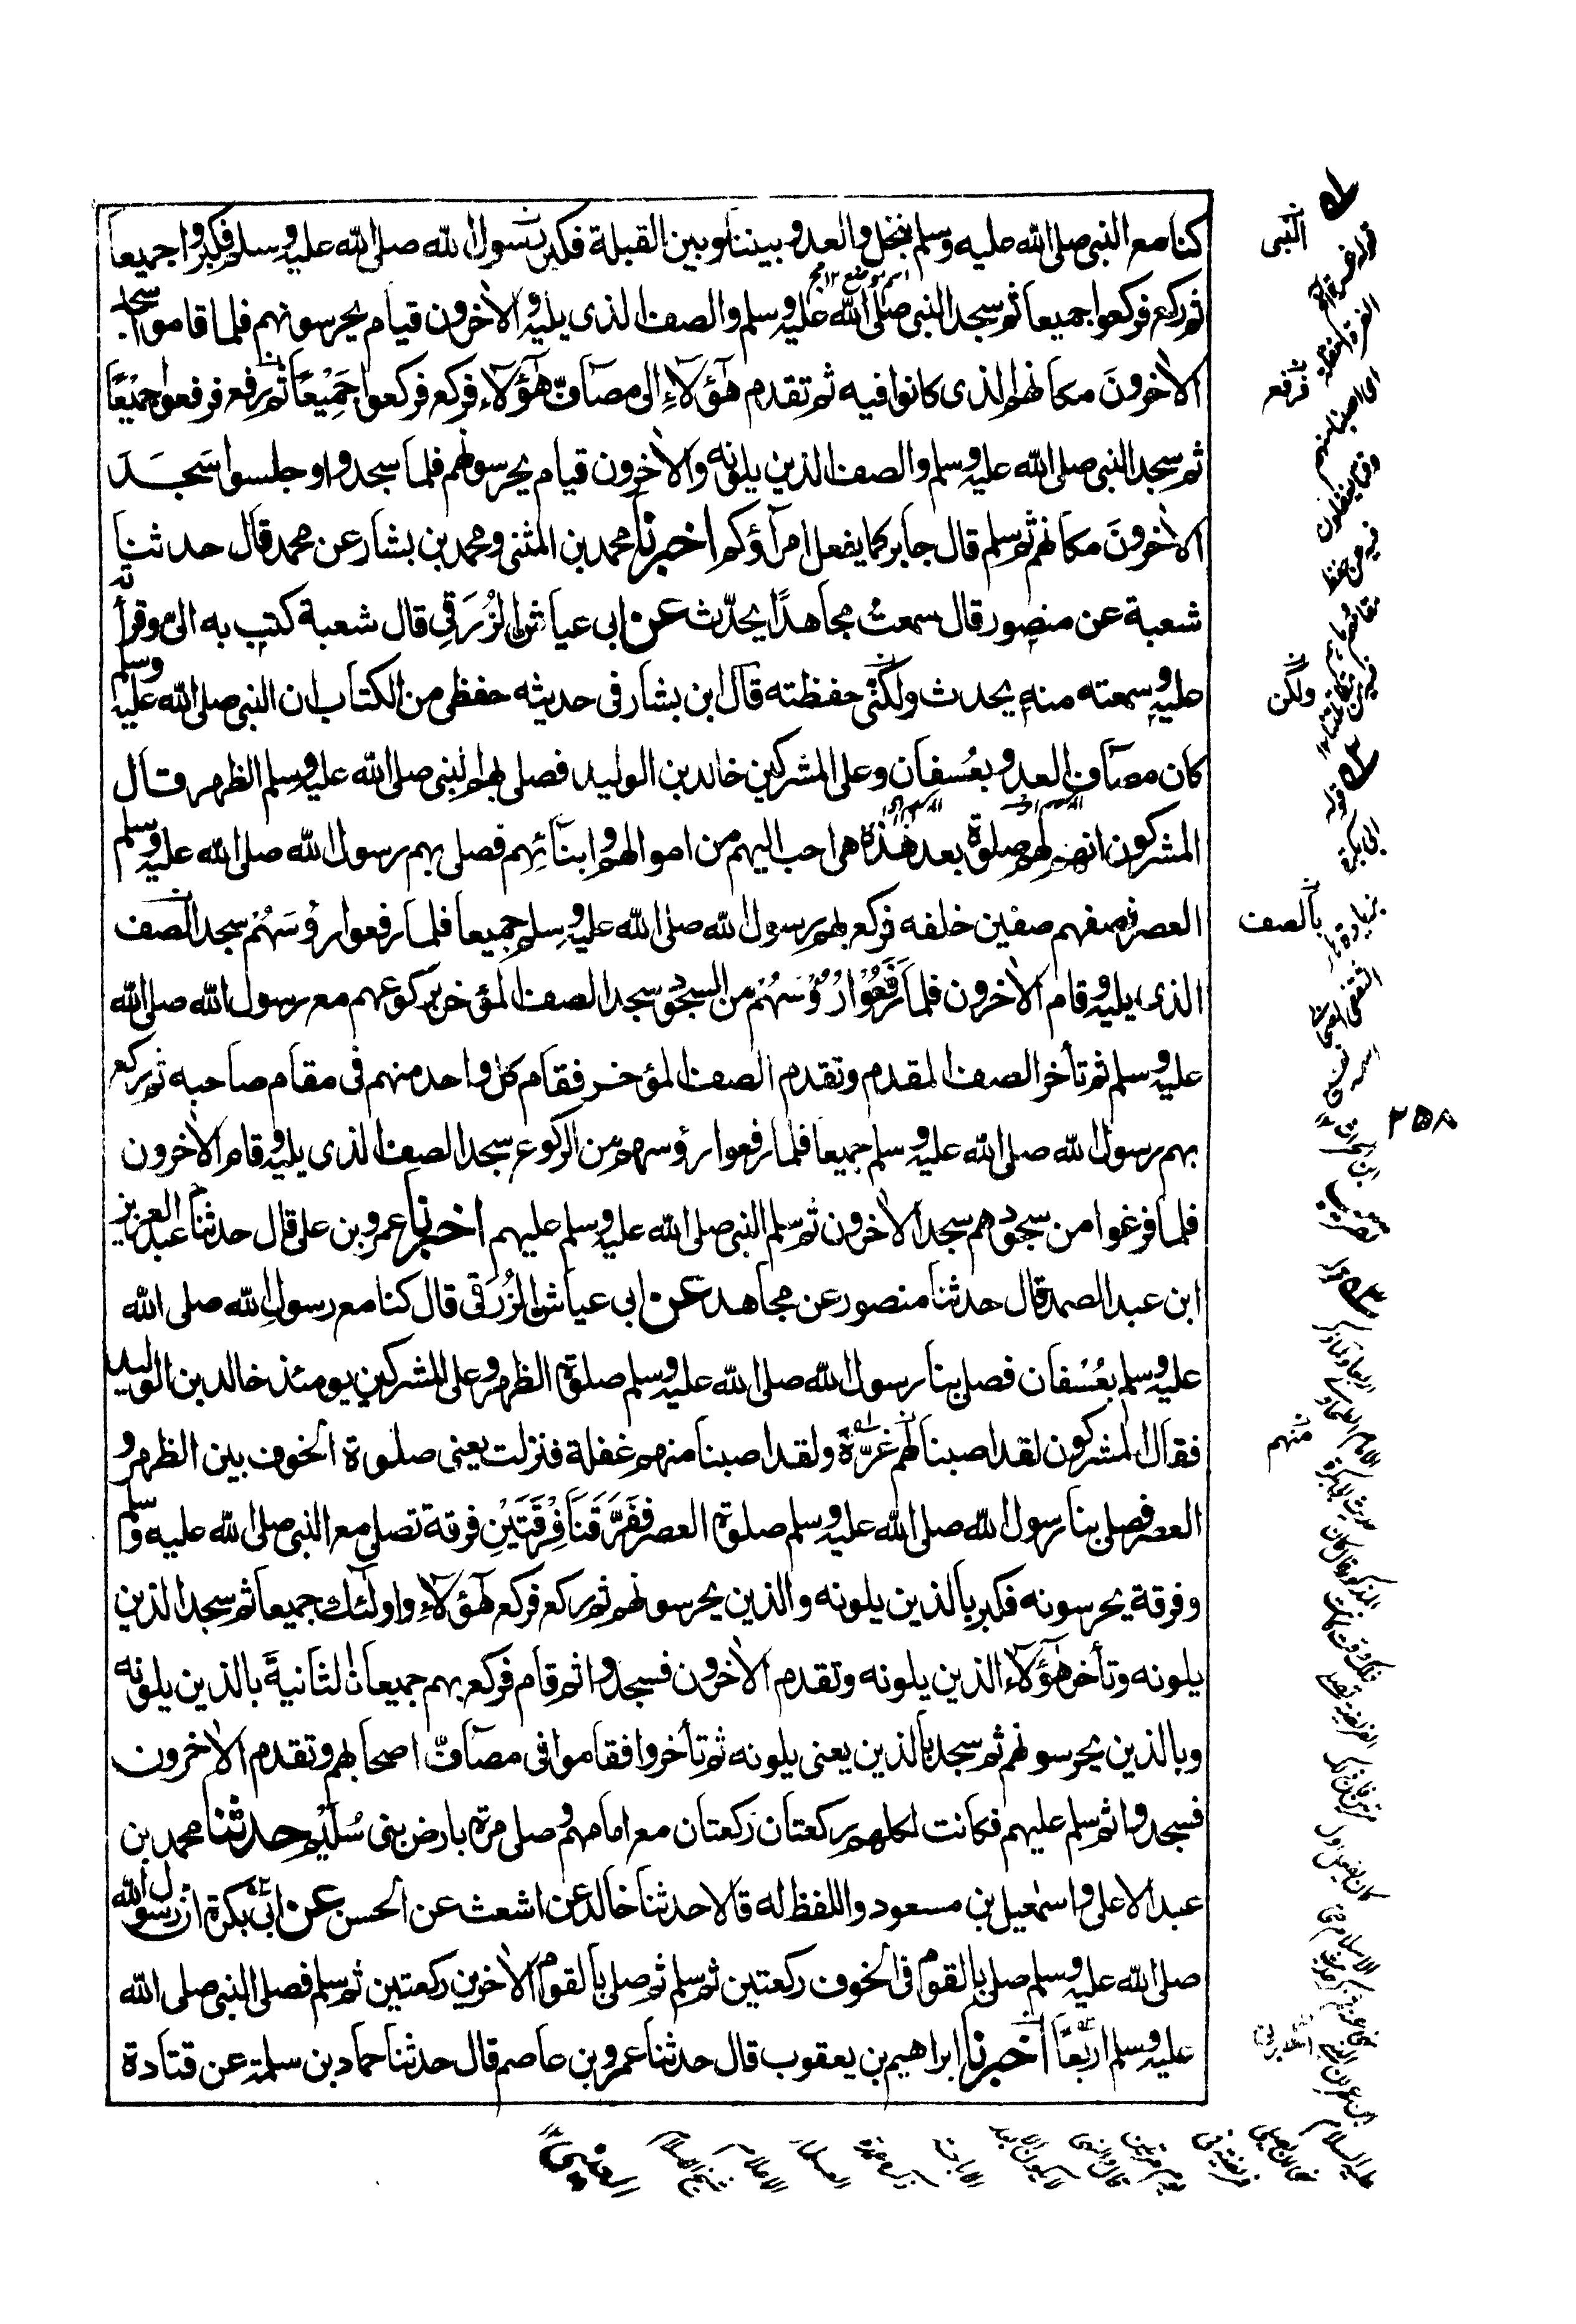 كنا مع النبي صلى الله عليه وسلم بنخل والعدو بيننا وبين القبلة فكبر رسول الله صلى الله عليه وسلم فكبروا جميعا
ثم ركع فركعوا جميعا ثم سجد النبي صلى الله عليه وسلم والصف الذى يليه والاٰخرون قيام يحرسونهم فلما قاموا سجد
الاٰخرونَ مكانهم الذى كانوا فيه ثم تقدم هٰؤلآءِ الى مصآفّ هٰؤلآء فركع فركعوا جَمِيْعًا ثم رفع فرفعوا جميْعًا
ثم سجد النبي صلى الله عليه وسلم والصف الذين يلونه والاٰخرون قيام يحرسونهم فلما سجدوا وجلسوا سَجَدَ
الاٰخرونَ مكانهم ثم سلم قال جابر كما يفعل امرآؤكم اخبرنا محمد بن المثنى ومحمد بن بشار عن محمد قال حدثنا
شعبة عن منصور قال سمعتُ مجاهدًا يحدّث عن ابى عياش الزُرَقى قال شعبة كتب به الىّ وقرأته
عليه وسمعته منه يحدث ولكنّى حفظته قال ابن بشار فى حديثه حفظى من الكتاب ان النبي صلى الله عليه وسلم
كان مصآف العدو بعُسفان وعلى المشركين خالد بن الوليد فصلى بهم النبي صلى الله عليه وسلم الظهر قال
المشركون ان لهم صلوة بعد هٰذه هى احب اليهم من اموالهم وابنآئهم فصلى بهم رسول الله صلى الله عليه وسلم
العصر فصفهم صفين خلفه فركع بهم رسول الله صلى الله عليه وسلم جميعا فلما رفعوا رؤسَهُمْ سجد الصف
الذى يليه وقام الاٰخرون فلما رَفَعُوْا رُؤُسَهُمْ من السجود سجد الصف المؤخر بركوعهم مع رسول الله صلى الله
عليه وسلم ثم تأخر الصف المقدم وتقدم الصف المؤخر فقام كل واحد منهم فى مقام صاحبه ثم ركع
بهم رسول الله صلى الله عليه وسلم جميعا فلما رفعوا رؤسهم من الركوع سجد الصف الذى يليه وقام الاٰخرون
فلما فرغوا من سجودهم سجد الاٰخرون ثم سلم النبي صلى الله عليه وسلم عليهم اخبرنا عمرو بن على قال حدثنا عبد العزيز
ابن عبد الصمد قال حدثنا منصور عن مجاهد عن ابى عياش الزُرَقى قال كنا مع رسول الله صلى الله
عليه وسلم بعُسْفان فصلى بنا رسول الله صلى الله عليه وسلم صلوة الظهر وعلى المشركين يومئذ خالد بن الوليد
فقال المشركون لقد اصبنا لهم غرّة ولقد اصبنا منهم غفلة فنزلت يعنى صلوة الخوف بين الظهر و
العصر فصلى بنا رسول الله صلى الله عليه وسلم صلوة العصر فَفَرَّقَنَا فِرْقَتَيْنِ فرقة تصلى مع النبي صلى الله عليه وسلم
وفرقة يحرسونه فكبر بالذين يلونه والذين يحرسونهم ثم ركع فركع هٰؤلآءِ واولٰئك جميعا ثم سجد الذين
يلونه وتأخر هٰؤلآء الذين يلونه وتقدم الاٰخرون فسجدوا ثم قام فركع بهم جميعا الثانيةَ بالذين يلونه
وبالذين يحرسونهم ثم سجد بالذين يعنى يلونه ثم تأخروا فقاموا فى مصآفّ اصحابهم وتقدم الاٰخرون
فسجدوا ثم سلم عليهم فكانت لكلهم ركعتان ركعتان مع امامهم وصلى مرة بارض بنى سُلَيْم حدثنا محمد بن
عبد الاعلى واسمٰعيل بن مسعود واللفظ له قالا حدثنا خالد عن اشعث عن الحسن عن ابى بكرة ان رسول الله
صلى الله عليه وسلم صلى بالقوم فى الخوف ركعتين ثم سلم ثم صلى بالقوم الاٰخرين ركعتين ثم سلم فصلى النبي صلى الله
عليه وسلم اربعًا اخبرنا ابراهيم بن يعقوب قال حدثنا عمرو بن عاصم قال حدثنا حماد بن سلمة عن قتادة
النبى
فرفع
ولكن
بالصف
منهم
٢٥٨